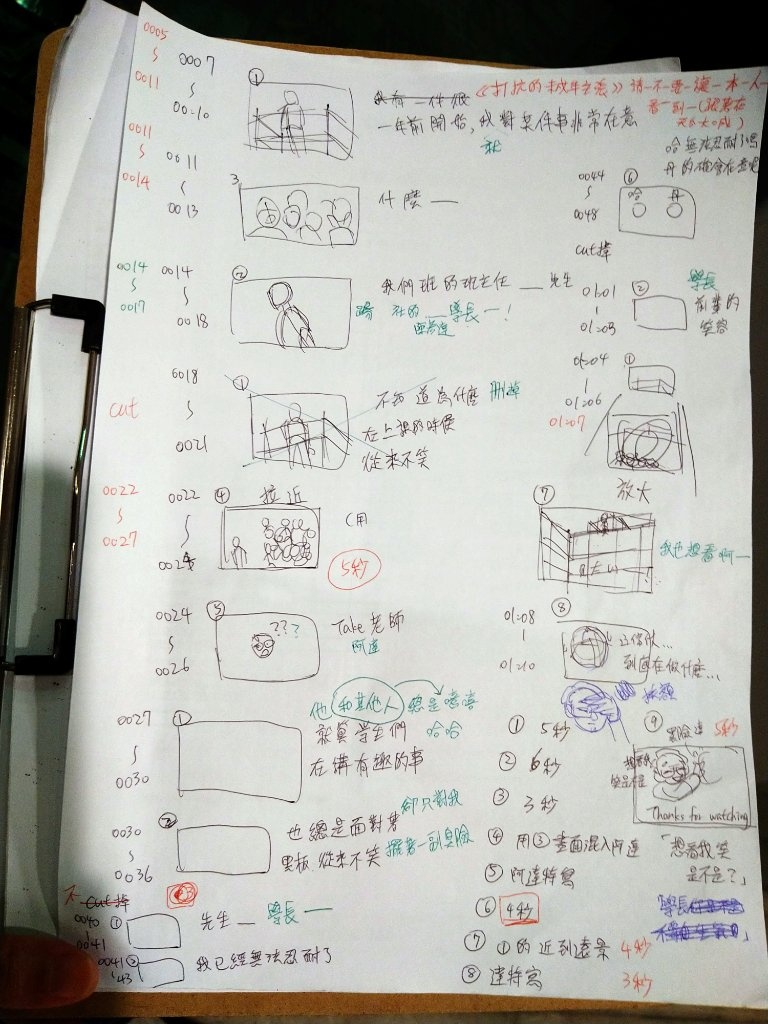 0005
0011
0007
0010
①
一年前開始,我對某件事非常在意
就
0011
0014
0011
0013
3
什麼一
0014
0017
0014
0018
②
我們班的班主任__先生
社的__學長一!
0018
cut
0021
①
不知道為什麼 刪掉
在上課的時候
從來不笑
0022
0027
0022
④ 拉近
(用
5秒
0024
0026
⑤
???
Take老師
阿達
他和其他人總是嘻嘻
哈哈
0027
0030
①
就算學生們
在講有趣的事
卻只對我
0030
0036
②
也總是面對著
黑板,從來不笑 擺著一副臭臉
不 cut掉
0040
0041
①
先生__ 學長一
0041
43
②
我已經無法忍耐了
請不要讓本人
看到
哈 無法忍耐了嗎
丹 的確會在意呢
0044
0048
⑥
哈 丹
cut掉
01:01
01:03
②
學長
前輩的
笑容
01:04
01:06
①
01:07
放大
⑦
我也想看啊一
01:08
01:10
⑧
這傢伙...
到底在做什麼...
① 5秒
② 6秒
③ 3秒
④ 用③畫面混入阿達
⑤ 阿達特寫
⑥ 4秒
⑦ ①的近到遠景 4秒
⑧ 達特寫 3秒
⑨ 5秒
想看我
笑是不是
Thanks for watching
「想看我笑
是不是?」
學長